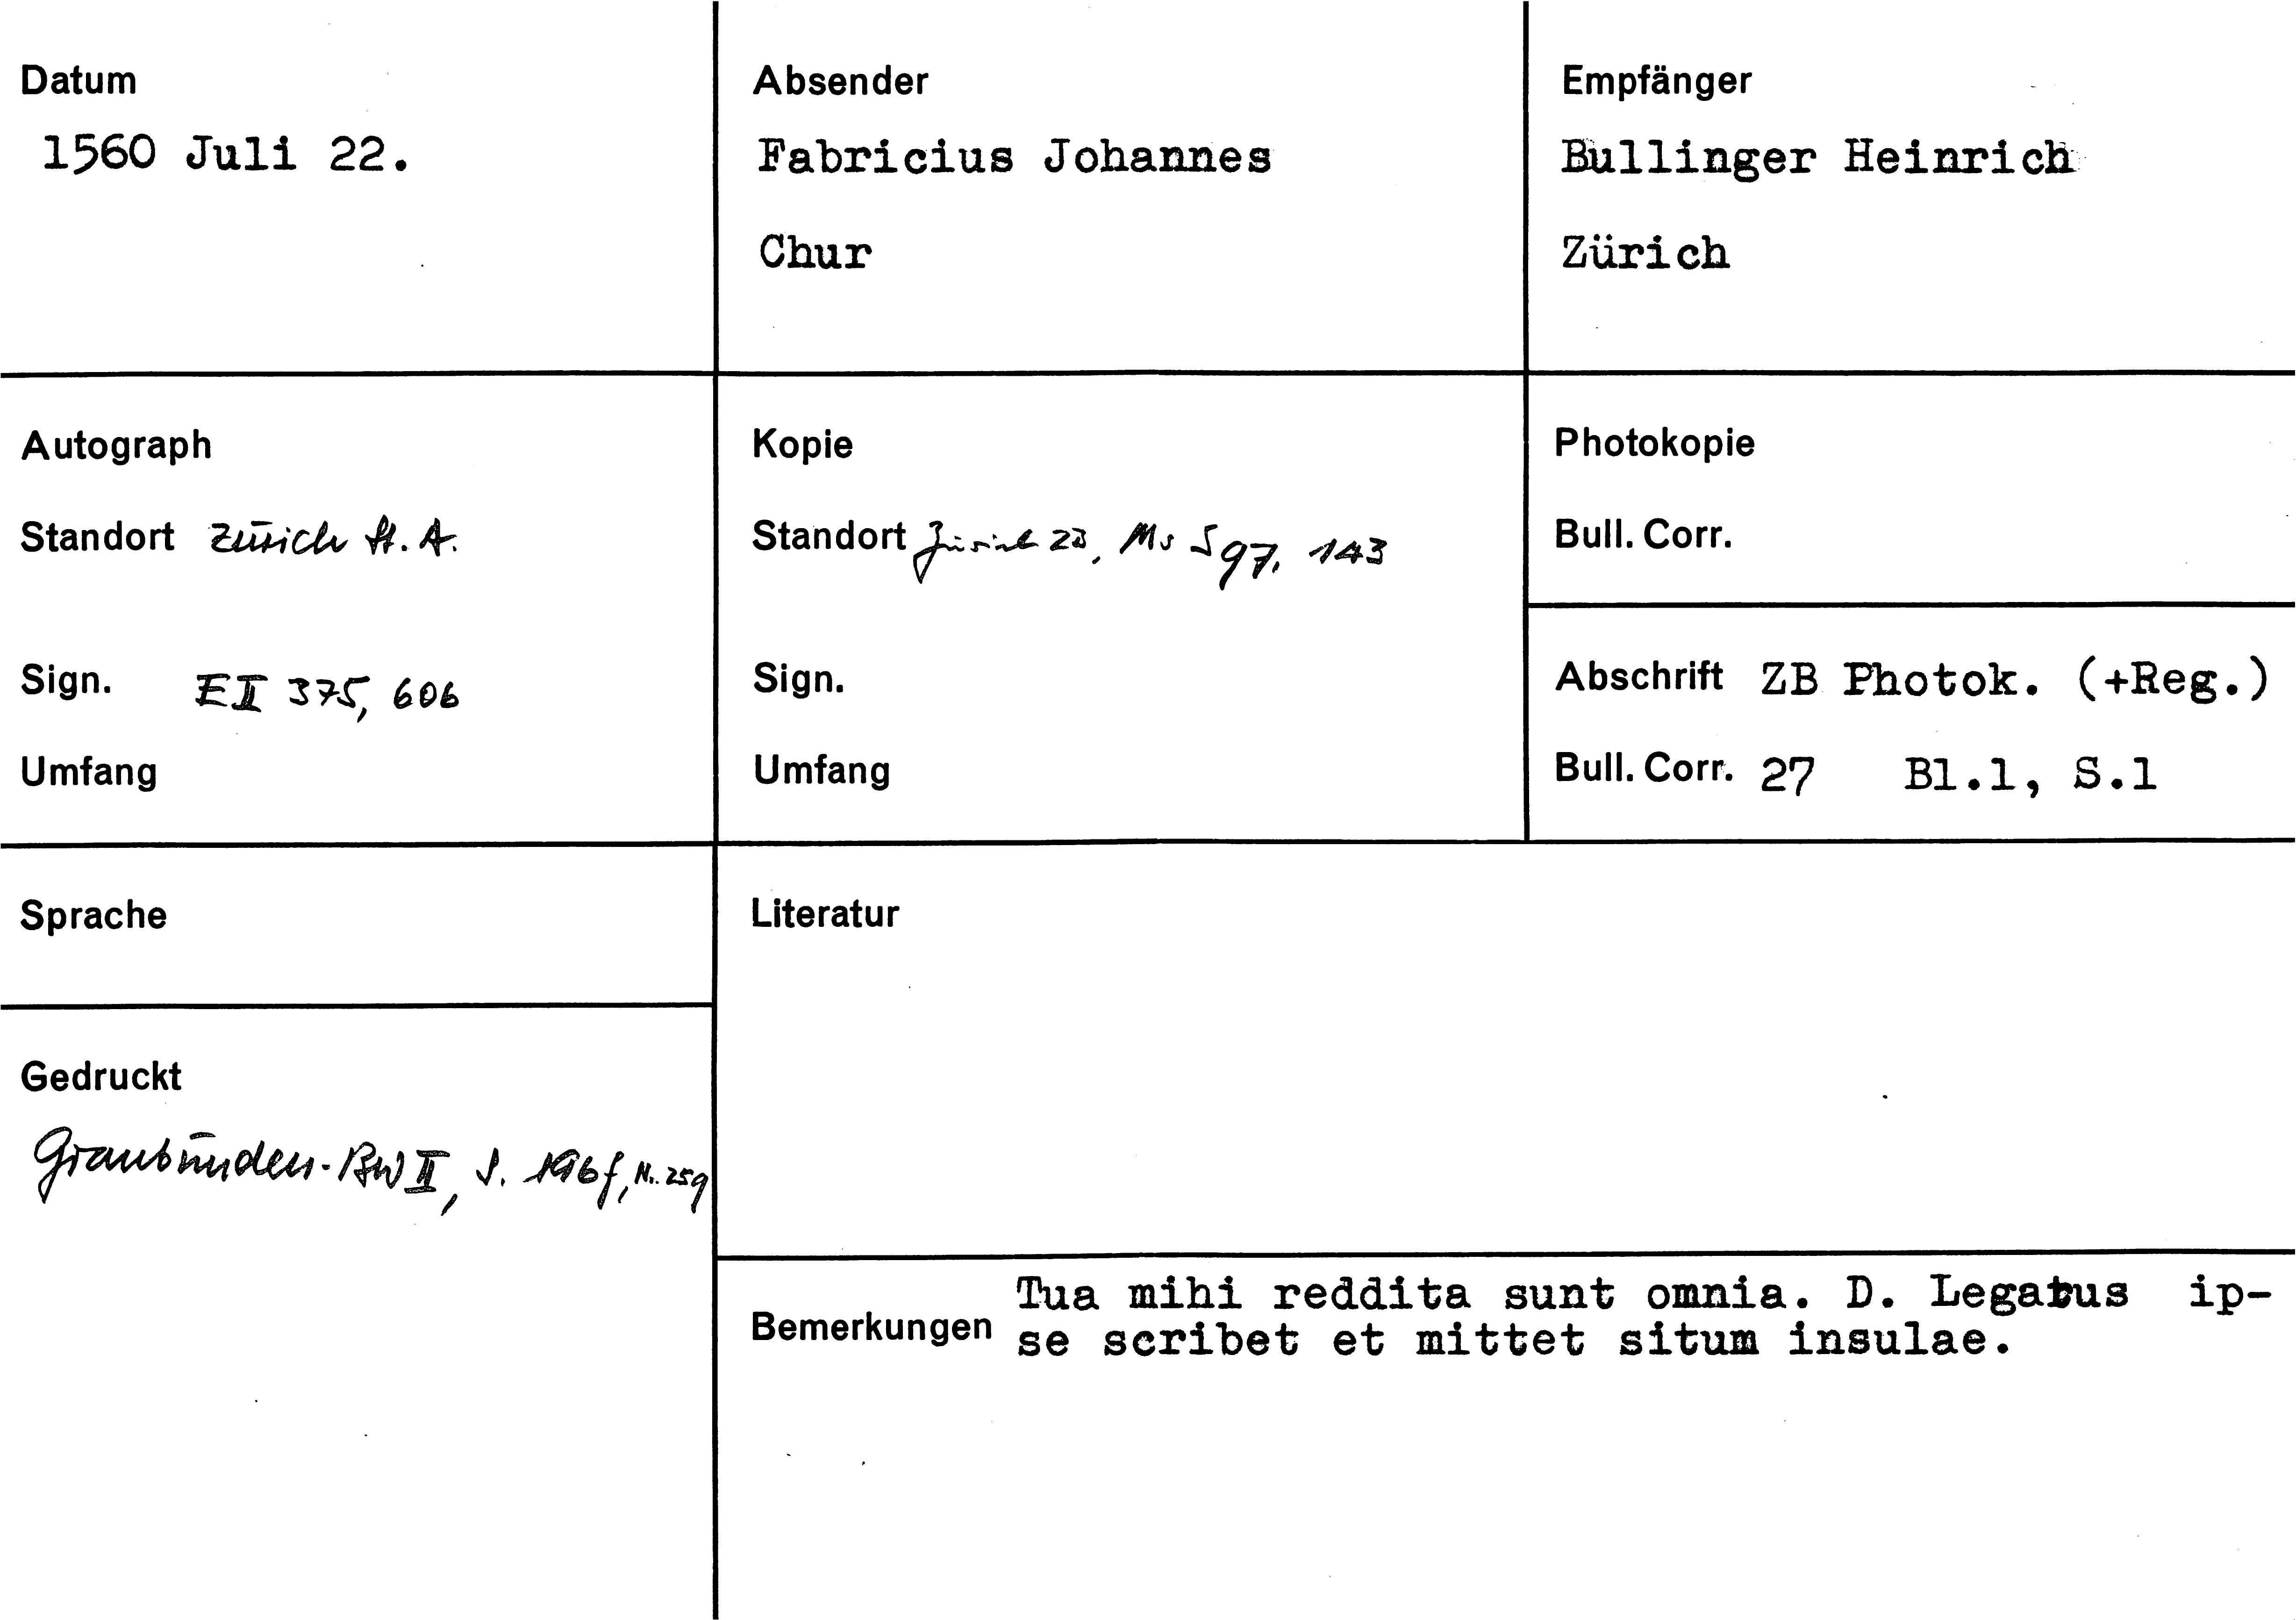 Datum
1560 Juli 22.
Absender
Fabricius Johannes
Chur
Empfänger
Bullinger Heinrich
Zürich
Autograph
Standort Zürich St. A.
Sign. E II 375, 606
Umfang
Kopie
Standort Zürich ZB, Ms S 97, 143
Sign.
Umfang
Photokopie
Bull. Corr.
Abschrift ZB Photok. (+Reg.)
Bull. Corr. 27 Bl.1, S.1
Sprache
Literatur
Gedruckt
Graubünden-BW II, S. 196f, Nr. 259
Bemerkungen
Tua mihi reddita sunt omnia. D. Legatus ip-
se scribet et mittet situm insulae.